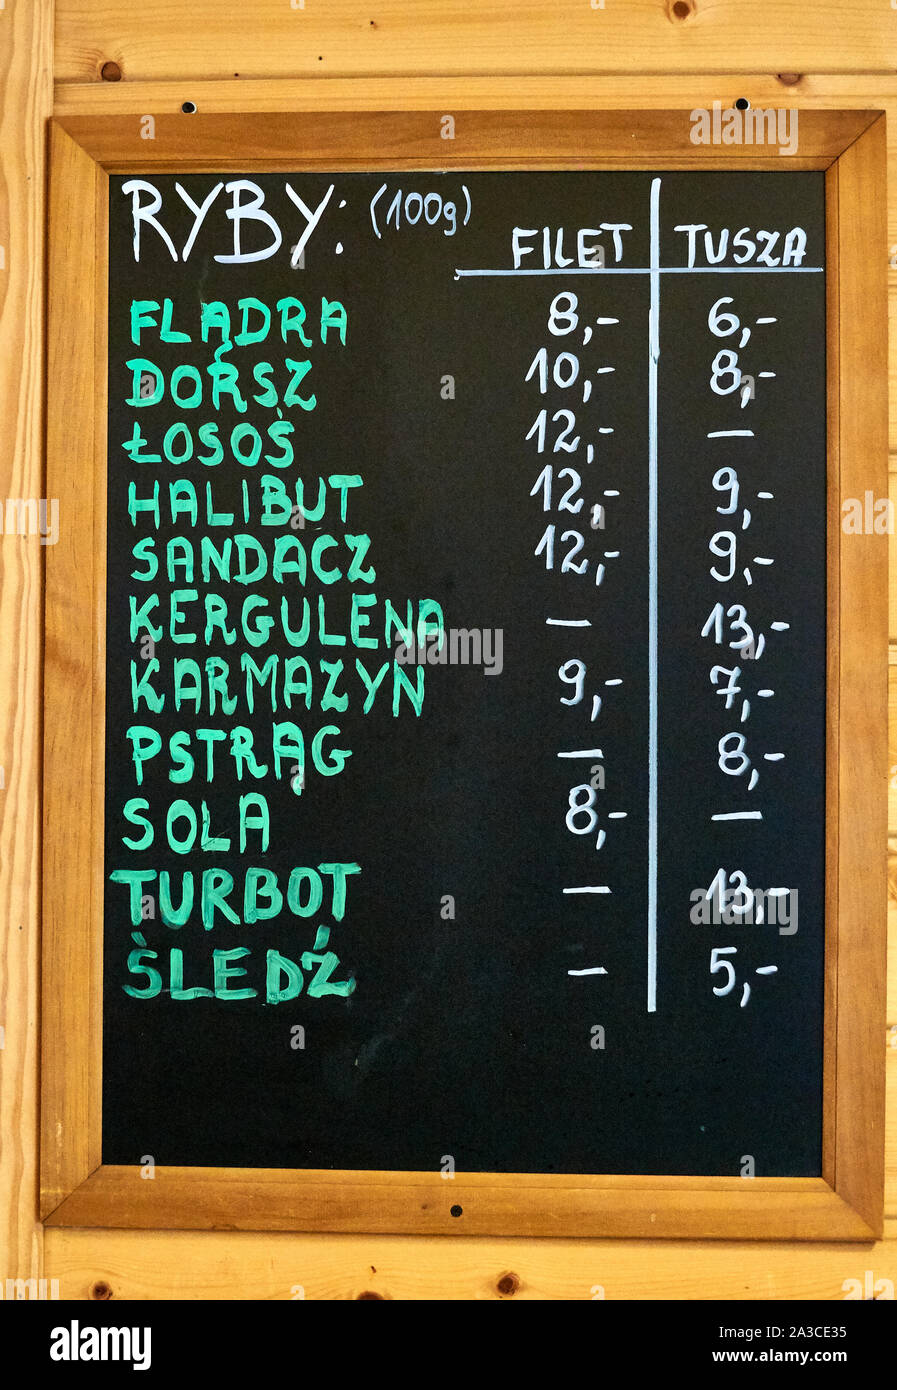 RYBY: (100g)
FILET TUSZA
FLĄDRA 8,- 6,-
DORSZ 10,- 8,-
ŁOSOŚ 12,- —
HALIBUT 12,- 9,-
SANDACZ 12,- 9,-
KERGULENA — 13,-
KARMAZYN 9,- 7,-
PSTRĄG — 8,-
SOLA 8,- —
TURBOT — 13,-
ŚLEDŹ — 5,-
alamy
Image ID: 2A3CE35
www.alamy.com